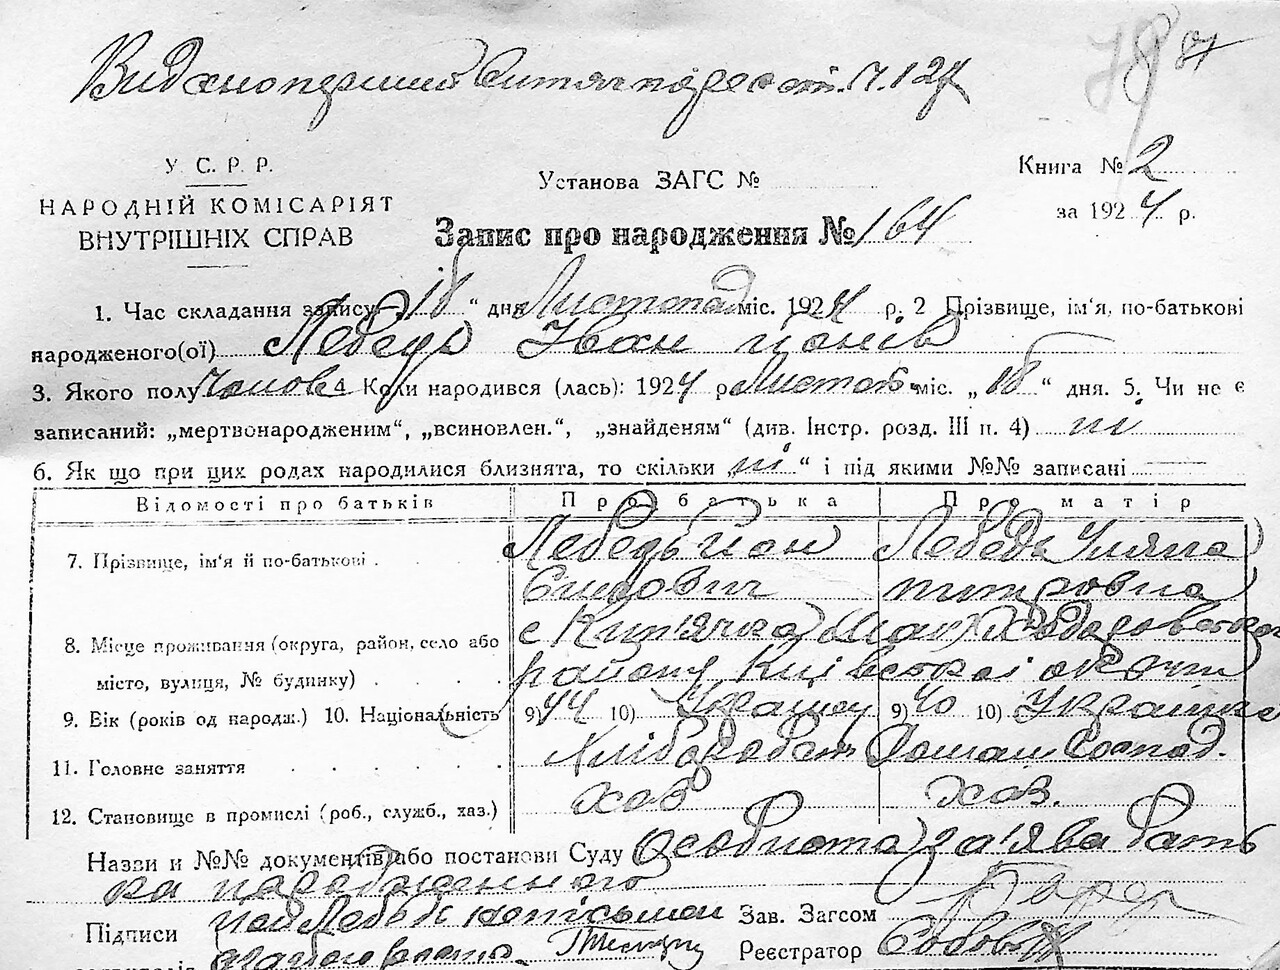 Видано перший витяг по реєст. Ч. 127
78
У. С. Р. Р.
НАРОДНІЙ КОМІСАРІЯТ
ВНУТРІШНІХ СПРАВ
Установа ЗАГС №
Книга № 2
за 1924 р.
Запис про народження № 164
1. Час складання запису „18“ дня Листопад міс. 1924 р. 2 Прізвище, ім'я, по-батькові
народженого(ої) Лебедь Іван
3. Якого полу Чолов 4 Коли народився (лась): 1924 р Листоп. міс. „ “ дня. 5. Чи не є
записаний: „мертвонародженим“, „всиновлен.“, „знайденям“ (див. Інстр. розд. III п. 4) ні
6. Як що при цих родах народилися близнята, то скільки ні “ і під якими №№ записані
Відомості про батьків Про батька Про матір
7. Прізвище, ім'я й по-батькові Лебедь Йон Лебедь Уляна
8. Місце проживання (округа, район, село або
місто, вулиця, № будинку) району Київської округи
9. Вік (років од народж.) 10. Національність 9) 44 10) Українец 9) 40 10) Українка
11. Головне заняття Хлібороб Домаш господ.
12. Становище в промислі (роб., служб., хаз.) Хаз Хаз.
Назви и №№ документів або постанови Суду Особиста за'ява бать
ка народженного
Підписи Йон Лебедь неписьмен Зав. Загсом
Реєстратор